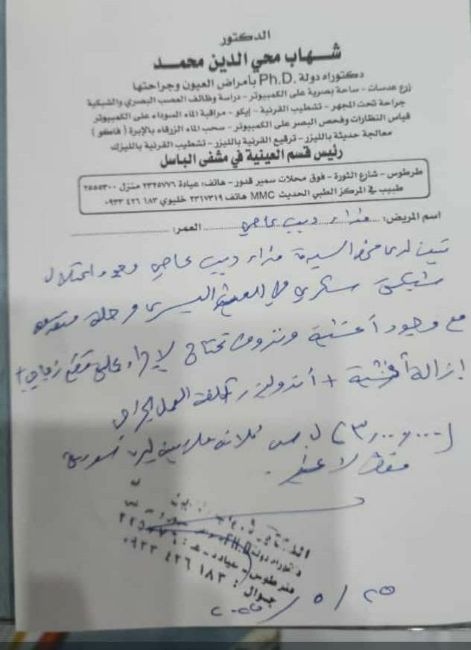 الدكتور
شهاب محي الدين محمد
دكتوراه دولة .Ph.D بأمراض العيون وجراحتها
زرع عدسات - ساحة بصرية على الكمبيوتر - دراسة وظائف العصب البصري والشبكية
جراحة تحت المجهر - تشطيب القرنية - إيكو - مراقبة الماء السوداء على الكمبيوتر
قياس النظارات وفحص البصر على الكمبيوتر - سحب الماء الزرقاء بالإبرة (فاكو)
معالجة حديثة بالليزر - ترقيع القرنية بالليزر - تشطيب القرنية بالليزك
رئيس قسم العينية في مشفى الباسل
طرطوس - شارع الثورة - فوق محلات سمير قدور - هاتف: عيادة ٢٢٢٥٧٧٦ منزل ٢٥٥٥٣٠٠
طبيب في المركز الطبي الحديث MMC هاتف ٢٣١٧٣١٩ خليوي ٠٩٣٣ ٤٢٦ ١٨٣
اسم المريض: فداء ديب عاصي العمر:
تبين لدى فحص السيدة فداء ديب عاصي وجود اعتلال
شبكية سكري في العين اليسرى مرحلة متقدمة
مع وجود أغشية ونزوف تحتاج لإجراء قطع زجاجي +
إزالة أغشية + أندوليزر تكلفة العمل الجراحي
(٣٠٠٠٠٠٠) ل.س ثلاثة ملايين ليرة سورية
فقط لا غير.
دكتوراه دولة Ph.D
طرطوس - عيادة - هـ: ٢٢٥٧٧٦
جوال: ٠٩٣٣ ٤٢٦ ١٨٣
٢٥ / ٥ /